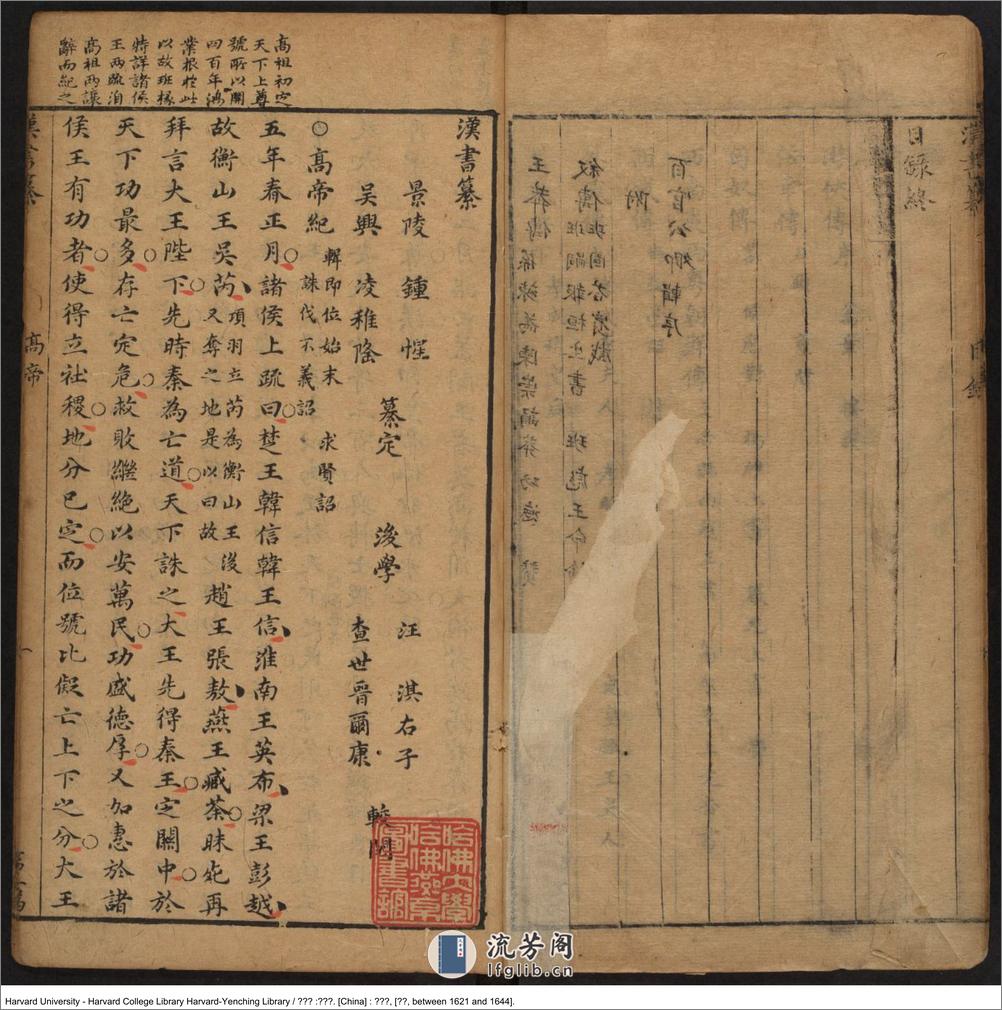 王莽傳 孫竦為陳崇頌莽功德 贊
敘傳 班固荅賓戲 班嗣報桓生書 班彪王命論
附
百官公卿輯序
目錄終
高祖初定
天下上尊
號所以開
四百年鴻
業根柢此
以故班椽
特詳諸侯
王兩疏洎
高祖兩讓
辭而紀之
漢書纂
景陵 鍾惺
吳興 凌稚隆 纂定
後學 汪淇右子
查世晉爾康 較閱
高帝紀 輯即位始末 誅伐不義詔 求賢詔
五年春正月諸侯上疏曰楚王韓信韓王信淮南王英布梁王彭越
故衡山王吳芮 項羽立芮為衡山王後又奪之地是以曰故 趙王張敖燕王臧荼昧死再
拜言大王陛下先時秦為亡道天下誅之大王先得秦王定關中於
天下功最多存亡定危救敗繼絕以安萬民功盛德厚又加惠於諸
侯王有功者使得立社稷地分已定而位號比儗亡上下之分大王
漢書纂 高帝 一
哈佛大學
哈佛燕京
圖書館
流芳阁
lfglib.cn
Harvard University - Harvard College Library Harvard-Yenching Library / ??? :???. [China] : ???, [??, between 1621 and 1644].